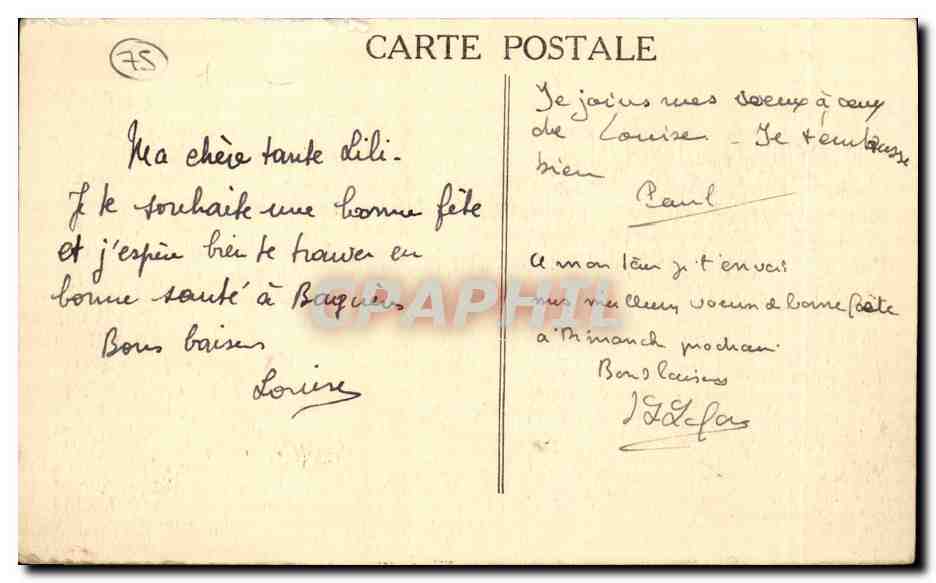 CARTE POSTALE
75
Ma chère tante Lili -
Je te souhaite une bonne fête
et j'espère bien te trouver en
bonne santé à Bagnères
Bons baisers
Louise
Je joins mes voeux à ceux
de Louise - Je t'embrasse
bien
Paul
A mon tour je t'envoi
mes meilleurs voeux de bonne fête
à Dimanche prochain.
Bons baisers
CPAPHIL